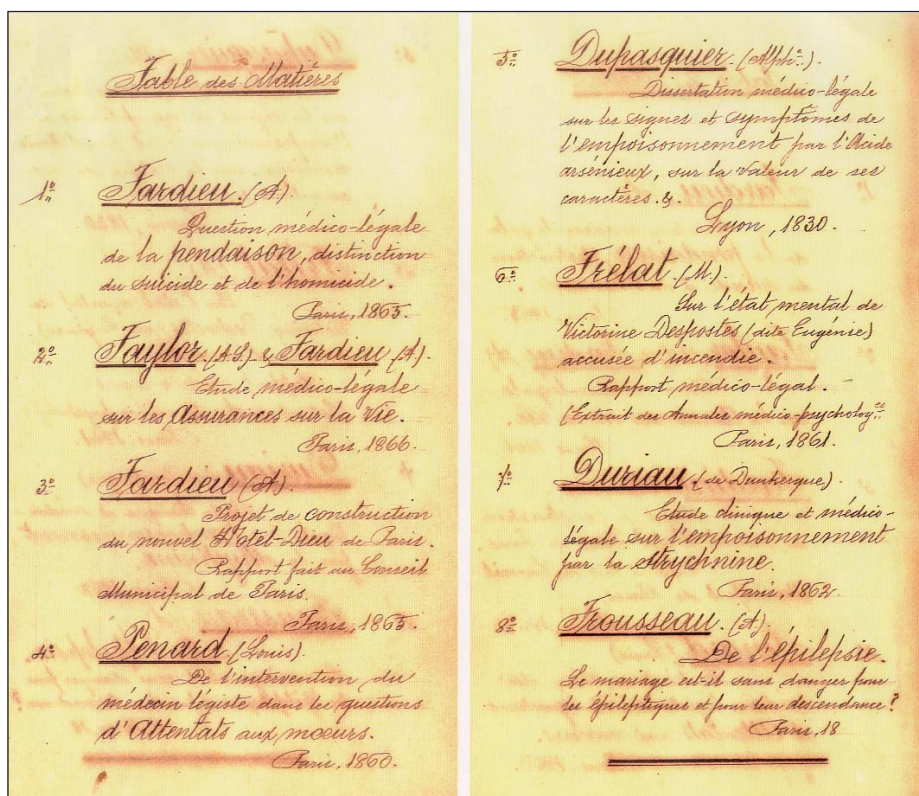 Table des Matières
1º Tardieu. (A).
Question médico-légale
de la pendaison, distinction
du suicide et de l'homicide.
Paris, 1865.
2º Taylor. (A.S). & Tardieu (A).
Etude médico-légale
sur les Assurances sur la Vie.
Paris, 1866.
3º Tardieu (A).
Projet de construction
du nouvel Hôtel-Dieu de Paris.
Rapport fait au Conseil
Municipal de Paris.
Paris, 1865.
4º Penard (Louis).
De l'intervention du
médecin légiste dans les questions
d'Attentats aux mœurs.
Paris, 1860.
5º Dupasquier. (Alph.e).
Dissertation médico-légale
sur les signes et symptômes de
l'empoisonnement par l'Acide
arsénieux, sur la valeur de ses
caractères. &.
Lyon, 1830.
6º Trélat (M.).
Sur l'état mental de
Victorine Despostes (dite
accusée d'incendie.
Rapport médico-légal.
(Extrait des Annales médico-psycholog.es
Paris, 1861.
7º Duriau. (de Dunkerque).
Etude clinique et médico-
légale sur l'empoisonnement
par la Strychnine.
Paris, 1862.
8º Trousseau. (A).
De l'épilepsie.
Le mariage est-il sans danger pour
les épileptiques et pour leur descendance?
Paris, 18